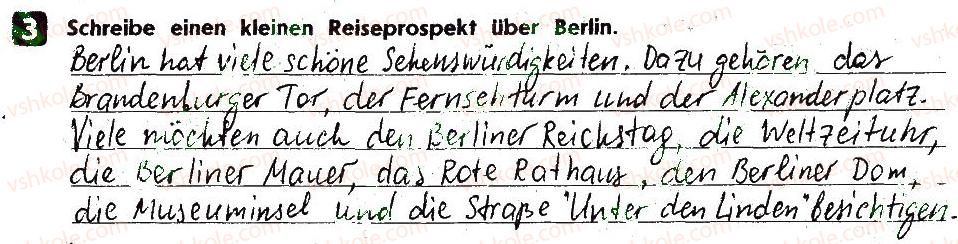 3 Schreibe einen kleinen Reiseprospekt über Berlin.
Berlin hat viele schöne Sehenswürdigkeiten. Dazu gehören das
Brandenburger Tor, der Fernsehturm und der Alexanderplatz.
Viele möchten auch den Berliner Reichstag, die Weltzeituhr,
die Berliner Mauer, das Rote Rathaus, den Berliner Dom,
die Museuminsel und die Straße "Unter den Linden" besichtigen.